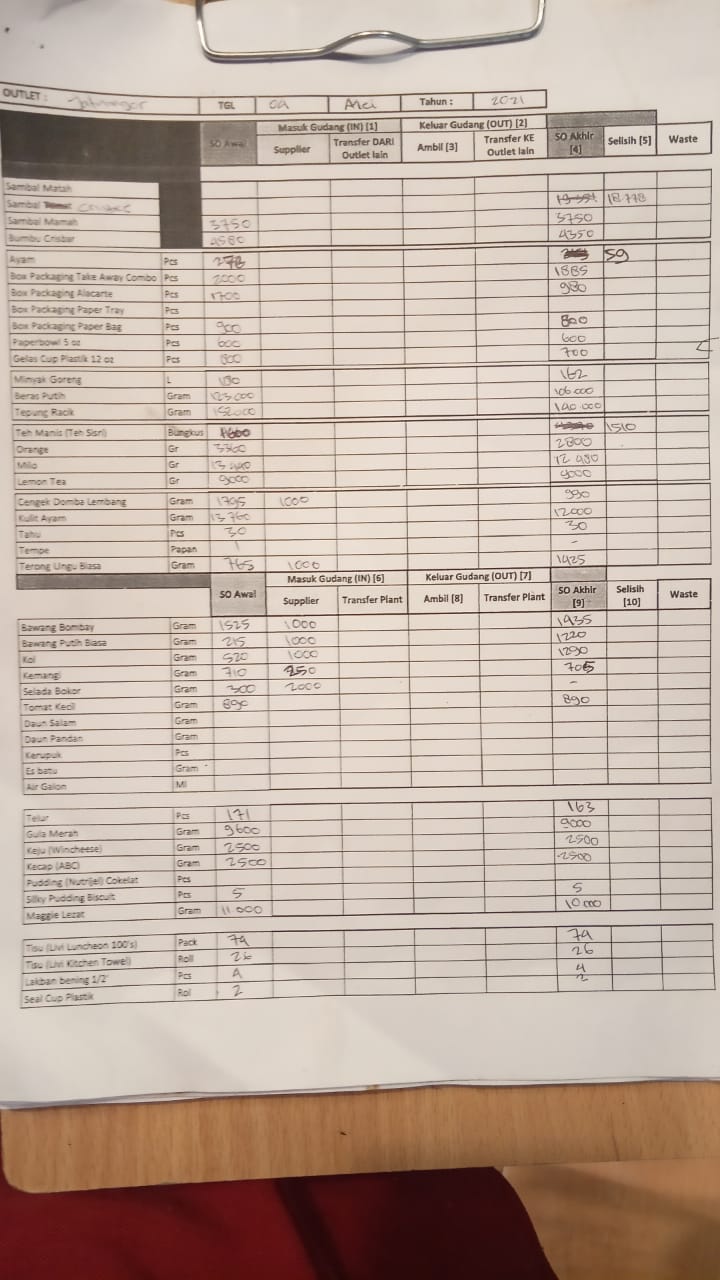 OUTLET : Jatinangor TGL 04 Mei Tahun : 2021
SO Awal Masuk Gudang (IN) [1] Keluar Gudang (OUT) [2] SO Akhir [4] Selisih [5] Waste
Supplier Transfer DARI Outlet lain Ambil [3] Transfer KE Outlet lain
Sambal Matah
Sambal 18.778
Sambal Mamah 3750 3750
Bumbu Crisbar 4580 4350
Ayam Pcs 278 59
Box Packaging Take Away Combo Pcs 2000 1885
Box Packaging Alacarte Pcs 1700 980
Box Packaging Paper Tray Pcs
Box Packaging Paper Bag Pcs 900 800
Paperbowl 5 oz Pcs 600 600
Gelas Cup Plastik 12 oz Pcs 800 700
Minyak Goreng L 180 162
Beras Putih Gram 123000 106.000
Tepung Racik Gram 152000 140.000
Teh Manis (Teh Sisri) Bungkus 1600 1510
Orange Gr 3360 2800
Milo Gr 13 440 12 480
Lemon Tea Gr 9000 9000
Cengek Domba Lembang Gram 1795 1000 990
Kulit Ayam Gram 13 760 12000
Tahu Pcs 30 30
Tempe Papan 1 -
Terong Ungu Biasa Gram 765 1000 1425
SO Awal Masuk Gudang (IN) [6] Keluar Gudang (OUT) [7] SO Akhir [9] Selisih [10] Waste
Supplier Transfer Plant Ambil [8] Transfer Plant
Bawang Bombay Gram 1525 1000 1435
Bawang Putih Biasa Gram 215 1000 1220
Kol Gram 520 1000 1290
Kemangi Gram 710 250 705
Selada Bokor Gram 300 2000 -
Tomat Kecil Gram 890 890
Daun Salam Gram
Daun Pandan Gram
Kerupuk Pcs
Es batu Gram
Air Galon Ml
Telur Pcs 171 163
Gula Merah Gram 9600 9000
Keju (Wincheese) Gram 2500 2500
Kecap (ABC) Gram 2500 2500
Pudding (Nutrijel) Cokelat Pcs
Silky Pudding Biscuit Pcs 5 5
Maggie Lezat Gram 11 000 10 000
Tisu (Livi Luncheon 100's) Pack 74 74
Tisu (Livi Kitchen Towel) Roll 26 26
Lakban bening 1/2' Pcs 4 4
Seal Cup Plastik Rol 2 2